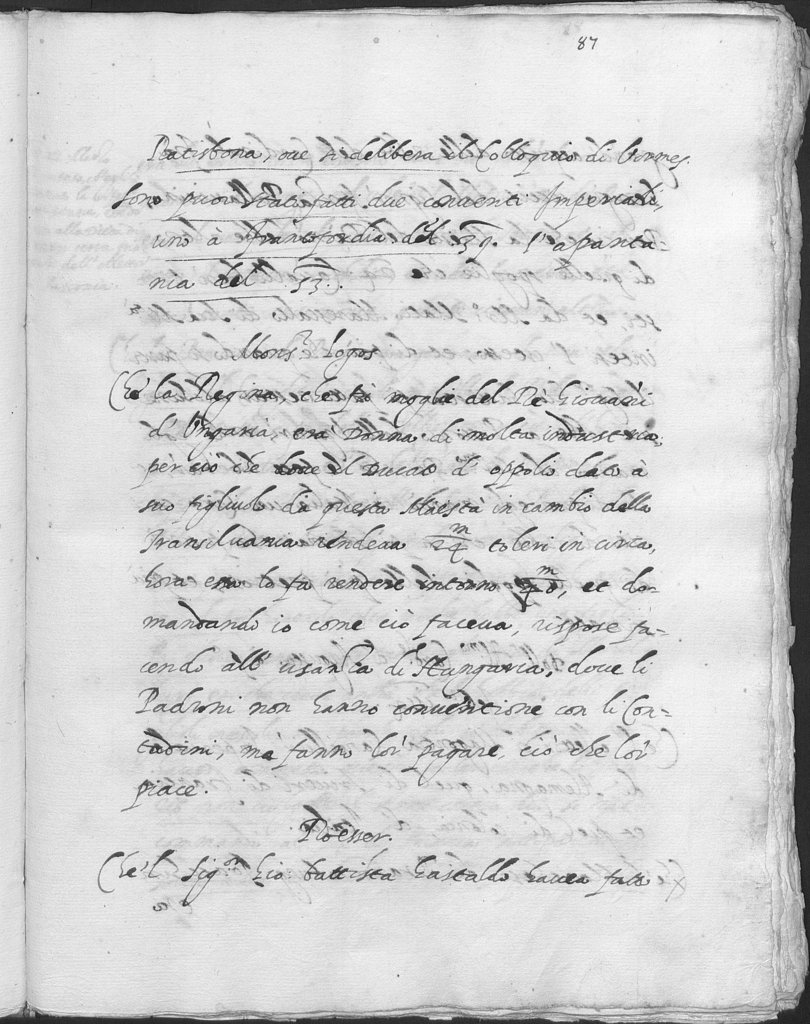 87
Ratisbona, oue si delibera il Colloquio di Vormes.
sono puoi stati fatti due conuenti Imperiali,
uno à Francfordia del 39. l'
nia del 53.
Mons.r Logos
Che la Regina, che fù moglie del Rè Giouañi
d'Ungaria, era Donna di molta industria,
per ciò che doue il Ducato d'oppolio dato à
suo figliuolo da questa Maestà in cambio della
Transiluania rendeua m/24 toleri in circa,
hora essa lo fa rendere intorno m/40, et do=
mandando io come ciò faceua, rispose fa=
cendo all' usanza di Hungaria, doue li
Padroni non hanno conuentione con li Con=
tadini, ma fanno lor pagare, ciò che lor
piace.
Roesser.
Che'l Sig.r Gio: battista Gastaldo hauea fato